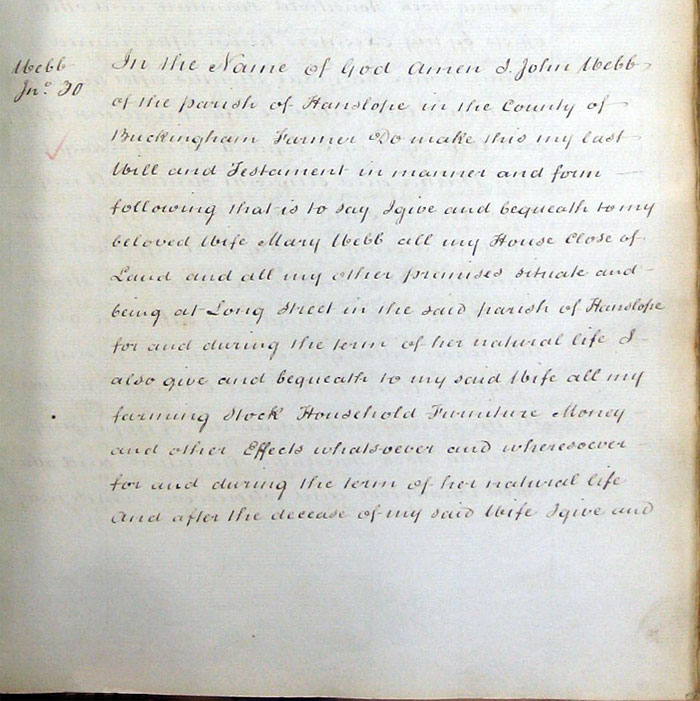 Webb
Jno. 30
In the Name of God Amen I John Webb
of the parish of Hanslope in the County of
Buckingham Farmer Do make this my last
Will and Testament in manner and form
following that is to say I give and bequeath to my
beloved Wife Mary Webb all my House Close of
Land and all my other premises situate and
being at Long Street in the said parish of Hanslope
for and during the term of her natural life I
also give and bequeath to my said Wife all my
farming Stock Household Furniture Money
and other Effects whatsoever and wheresoever
for and during the term of her natural life
And after the decease of my said Wife I give and